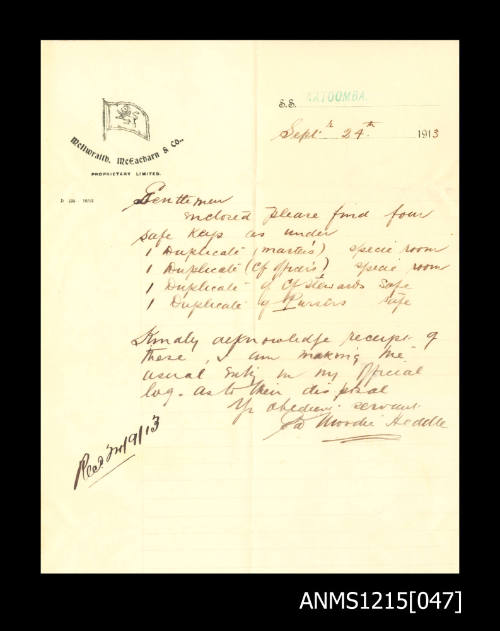 S.S. KATOOMBA.
Septr 24th 1913
McIlwraith, McEacharn & Co.,
PROPRIETARY LIMITED.
Gentlemen
Enclosed please find four
safe keys as under
1 Duplicate (master's) specie room
1 Duplicate (Cf officer's) specie room
1 Duplicate of Cf Stewards safe
1 Duplicate of Pursers safe
Kindly acknowledge receipt of
these, I am making the
usual entry in my Official
log. as to their disposal
Yr obedient servant
Moodie Heddle
Recd 24/9/13
ANMS1215[047]